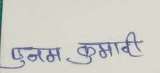 पुनम कुमारी